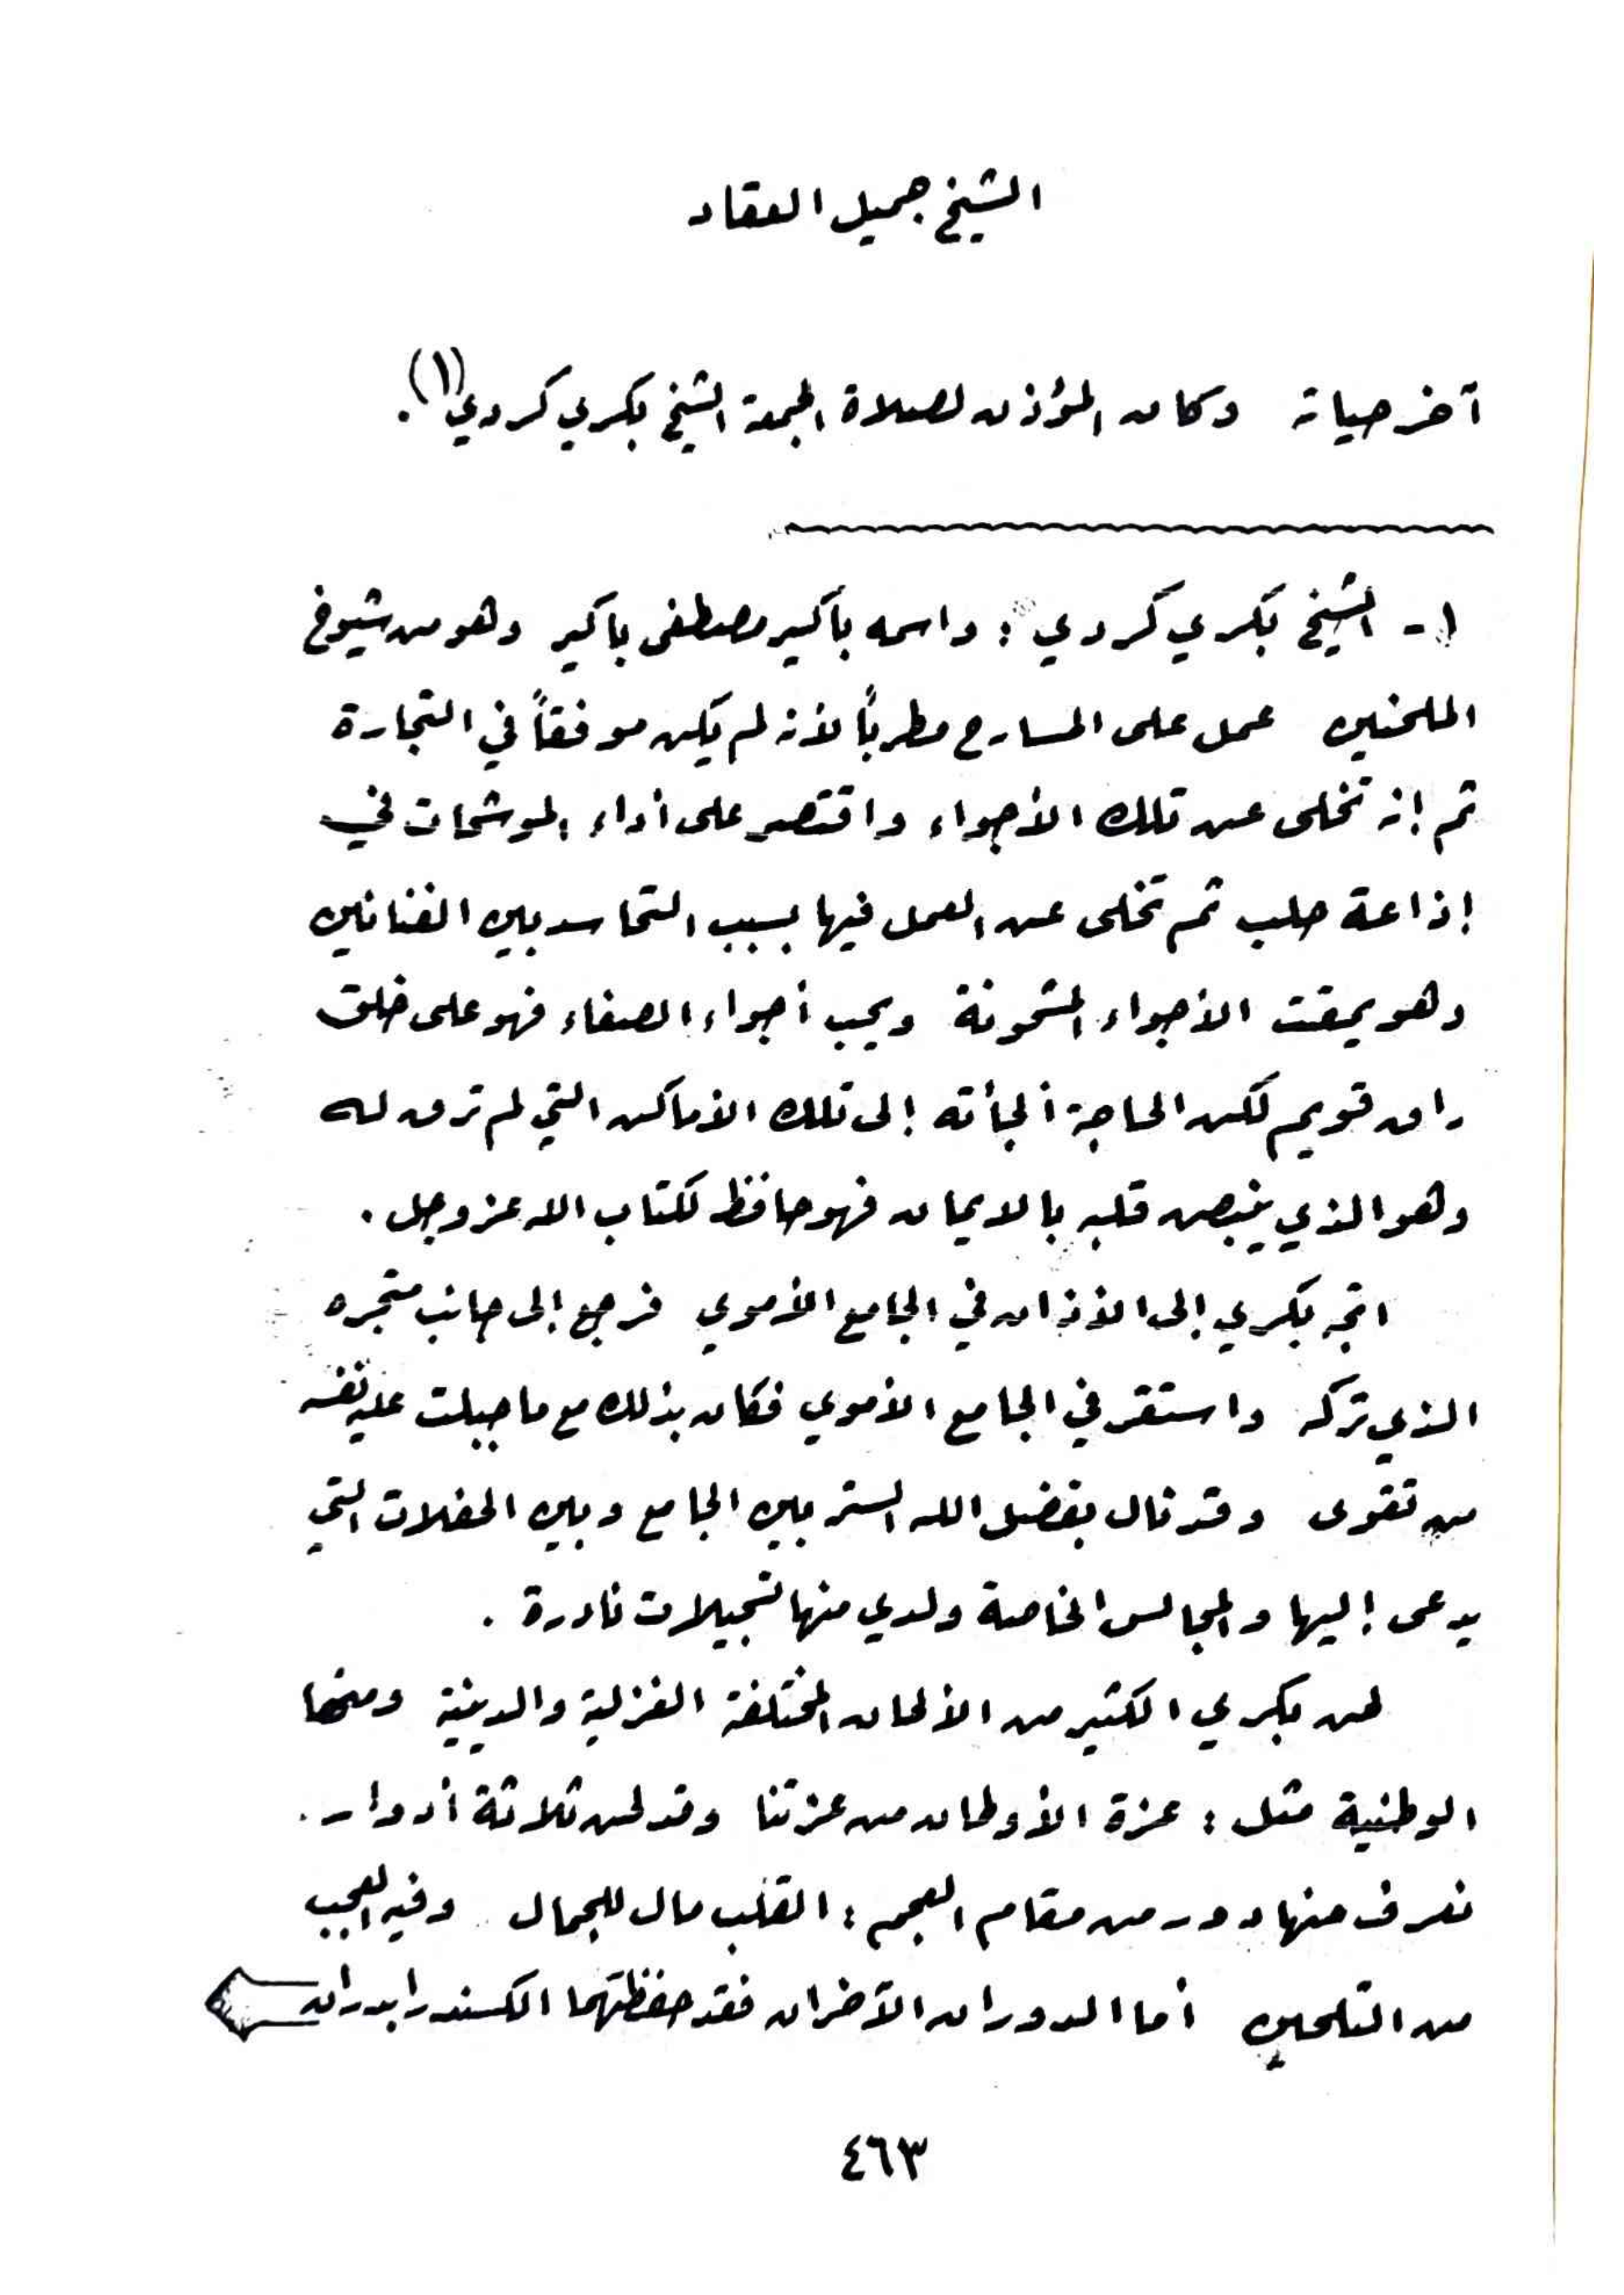 الشيخ جميل العقاد
آخر حياته وكان المؤذن لصلاة الجمعة الشيخ بكري كردي (١).
١- الشيخ بكري كردي : واسمه باكير مصطفى باكير وهو من شيوخ
الملحنين عمل على المسارح مطرباً لأنه لم يكن موفقاً في التجارة
ثم إنه تخلى عن تلك الأجواء واقتصر على أداء الموشحات في
إذاعة حلب ثم تخلى عن العمل فيها بسبب التحاسد بين الفنانين
وهو يمقت الأجواء المشحونة ويحب أجواء الصفاء فهو على خلق
راق قويم لكن الحاجة ألجأته إلى تلك الأماكن التي لم ترق له
وهو الذي ينبض قلبه بالايمان فهو حافظ لكتاب الله عز وجل .
اتجه بكري إلى الأذان في الجامع الأموي فرجع إلى جانب متجره
الذي تركه واستقر في الجامع الأموي فكان بذلك مع ما جبلت عليه نفسه
من تقوى وقد نال بفضل الله الستر بين الجامع وبين الحفلات التي
يدعى إليها والمجالس الخاصة ولدي منها تسجيلات نادرة .
لحن بكري الكثير من الألحان المختلفة الغزلية والدينية ومنها
الوطنية مثل : عزة الأوطان من عزتنا وقد لحن ثلاثة أدوار .
نعرف منها دور من مقام العجم : القلب مال للجمال وفيه العجيب
من التلحين أما الدوران الآخران فقد حفظتهما الكسندرا بدران
٤٦٣